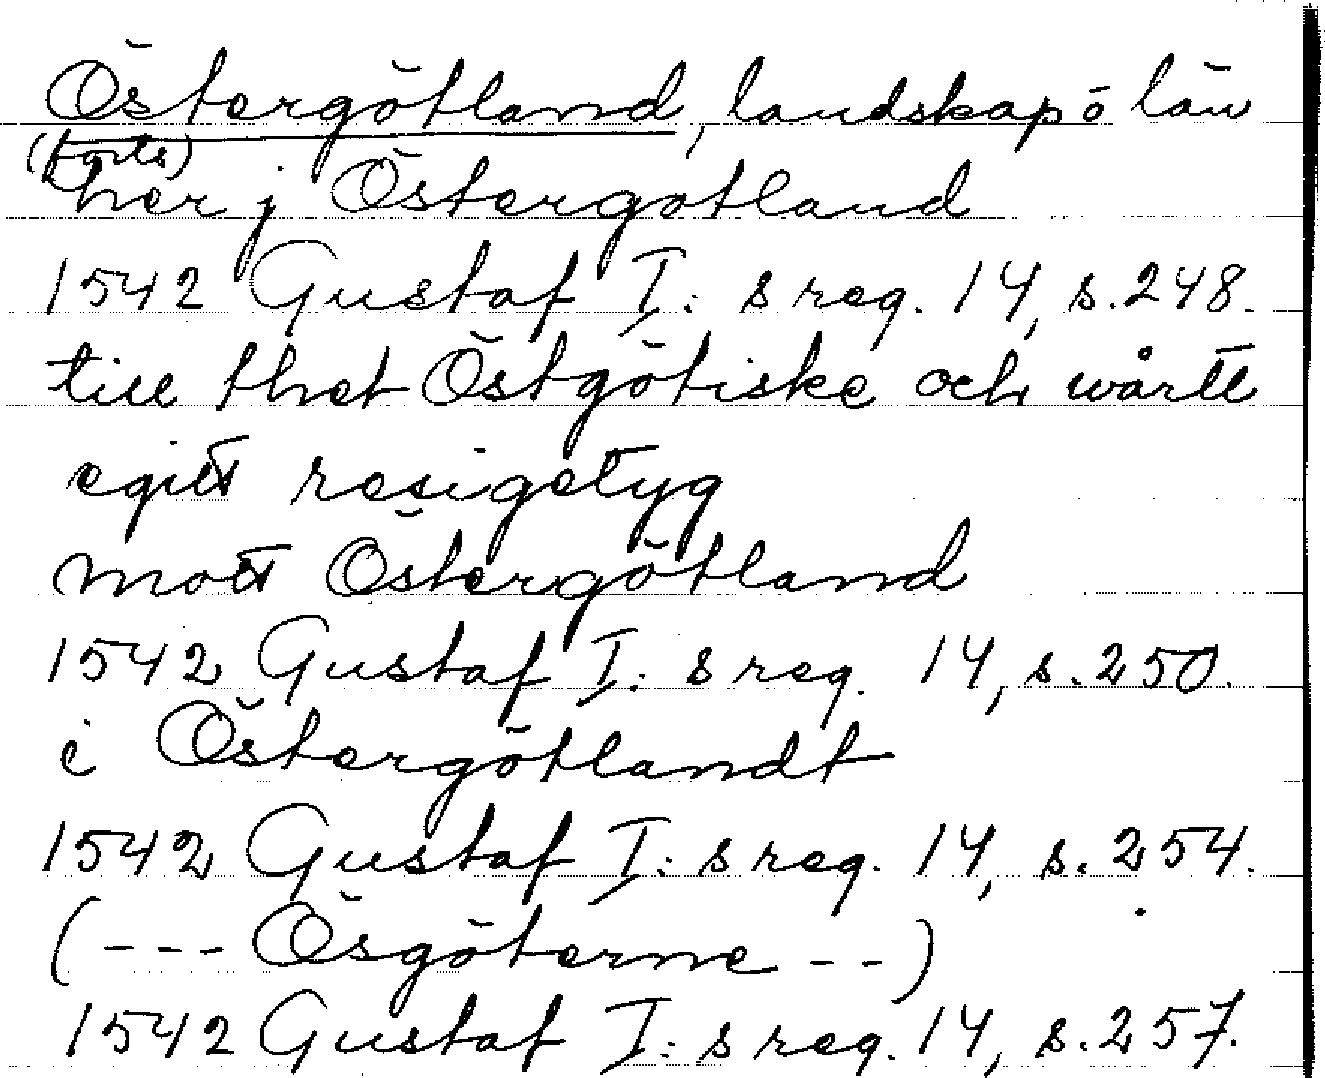 Östergötland, landskap o län
(forts)
her j Östergötland
1542 Gustaf I: s reg. 14, s. 248.
till thet Östgötiske och wårtt
egitt resigetyg
mott Östergötland
1542 Gustaf I: s reg. 14, s. 250.
i Östergötlandt
1542 Gustaf I: s reg. 14, s. 254.
(--- Ösgöterne --)
1542 Gustaf I: s reg. 14, s. 257.